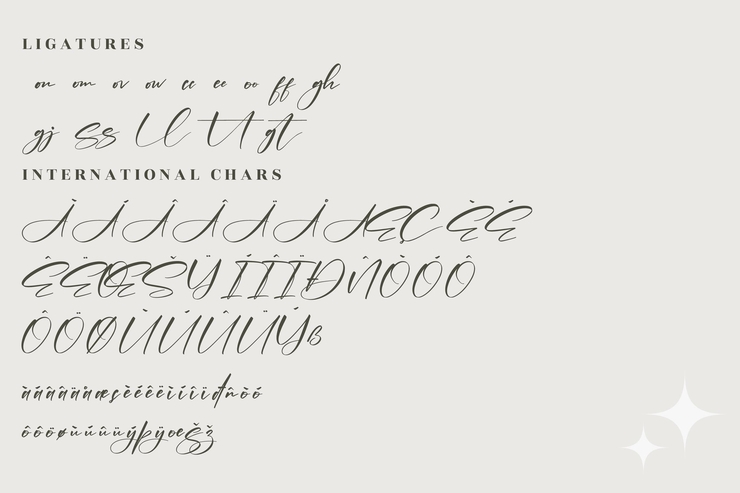 LIGATURES
on om ov ow cc ee oo ff gh
gj ss ll tt gt
INTERNATIONAL CHARS
À Á Â Ã Ä Å Æ Ç È É
Ê Ë Œ Š Ÿ Í Î Ï Ð Ñ Ò Ó Ô
Õ Ö Ø Ù Ú Û Ü Ý ß
à á â ã ä å æ ç è é ê ë ì í î ï đ ñ ò ó
ô õ ö ø ù ú û ü ý þ ÿ œ š ž